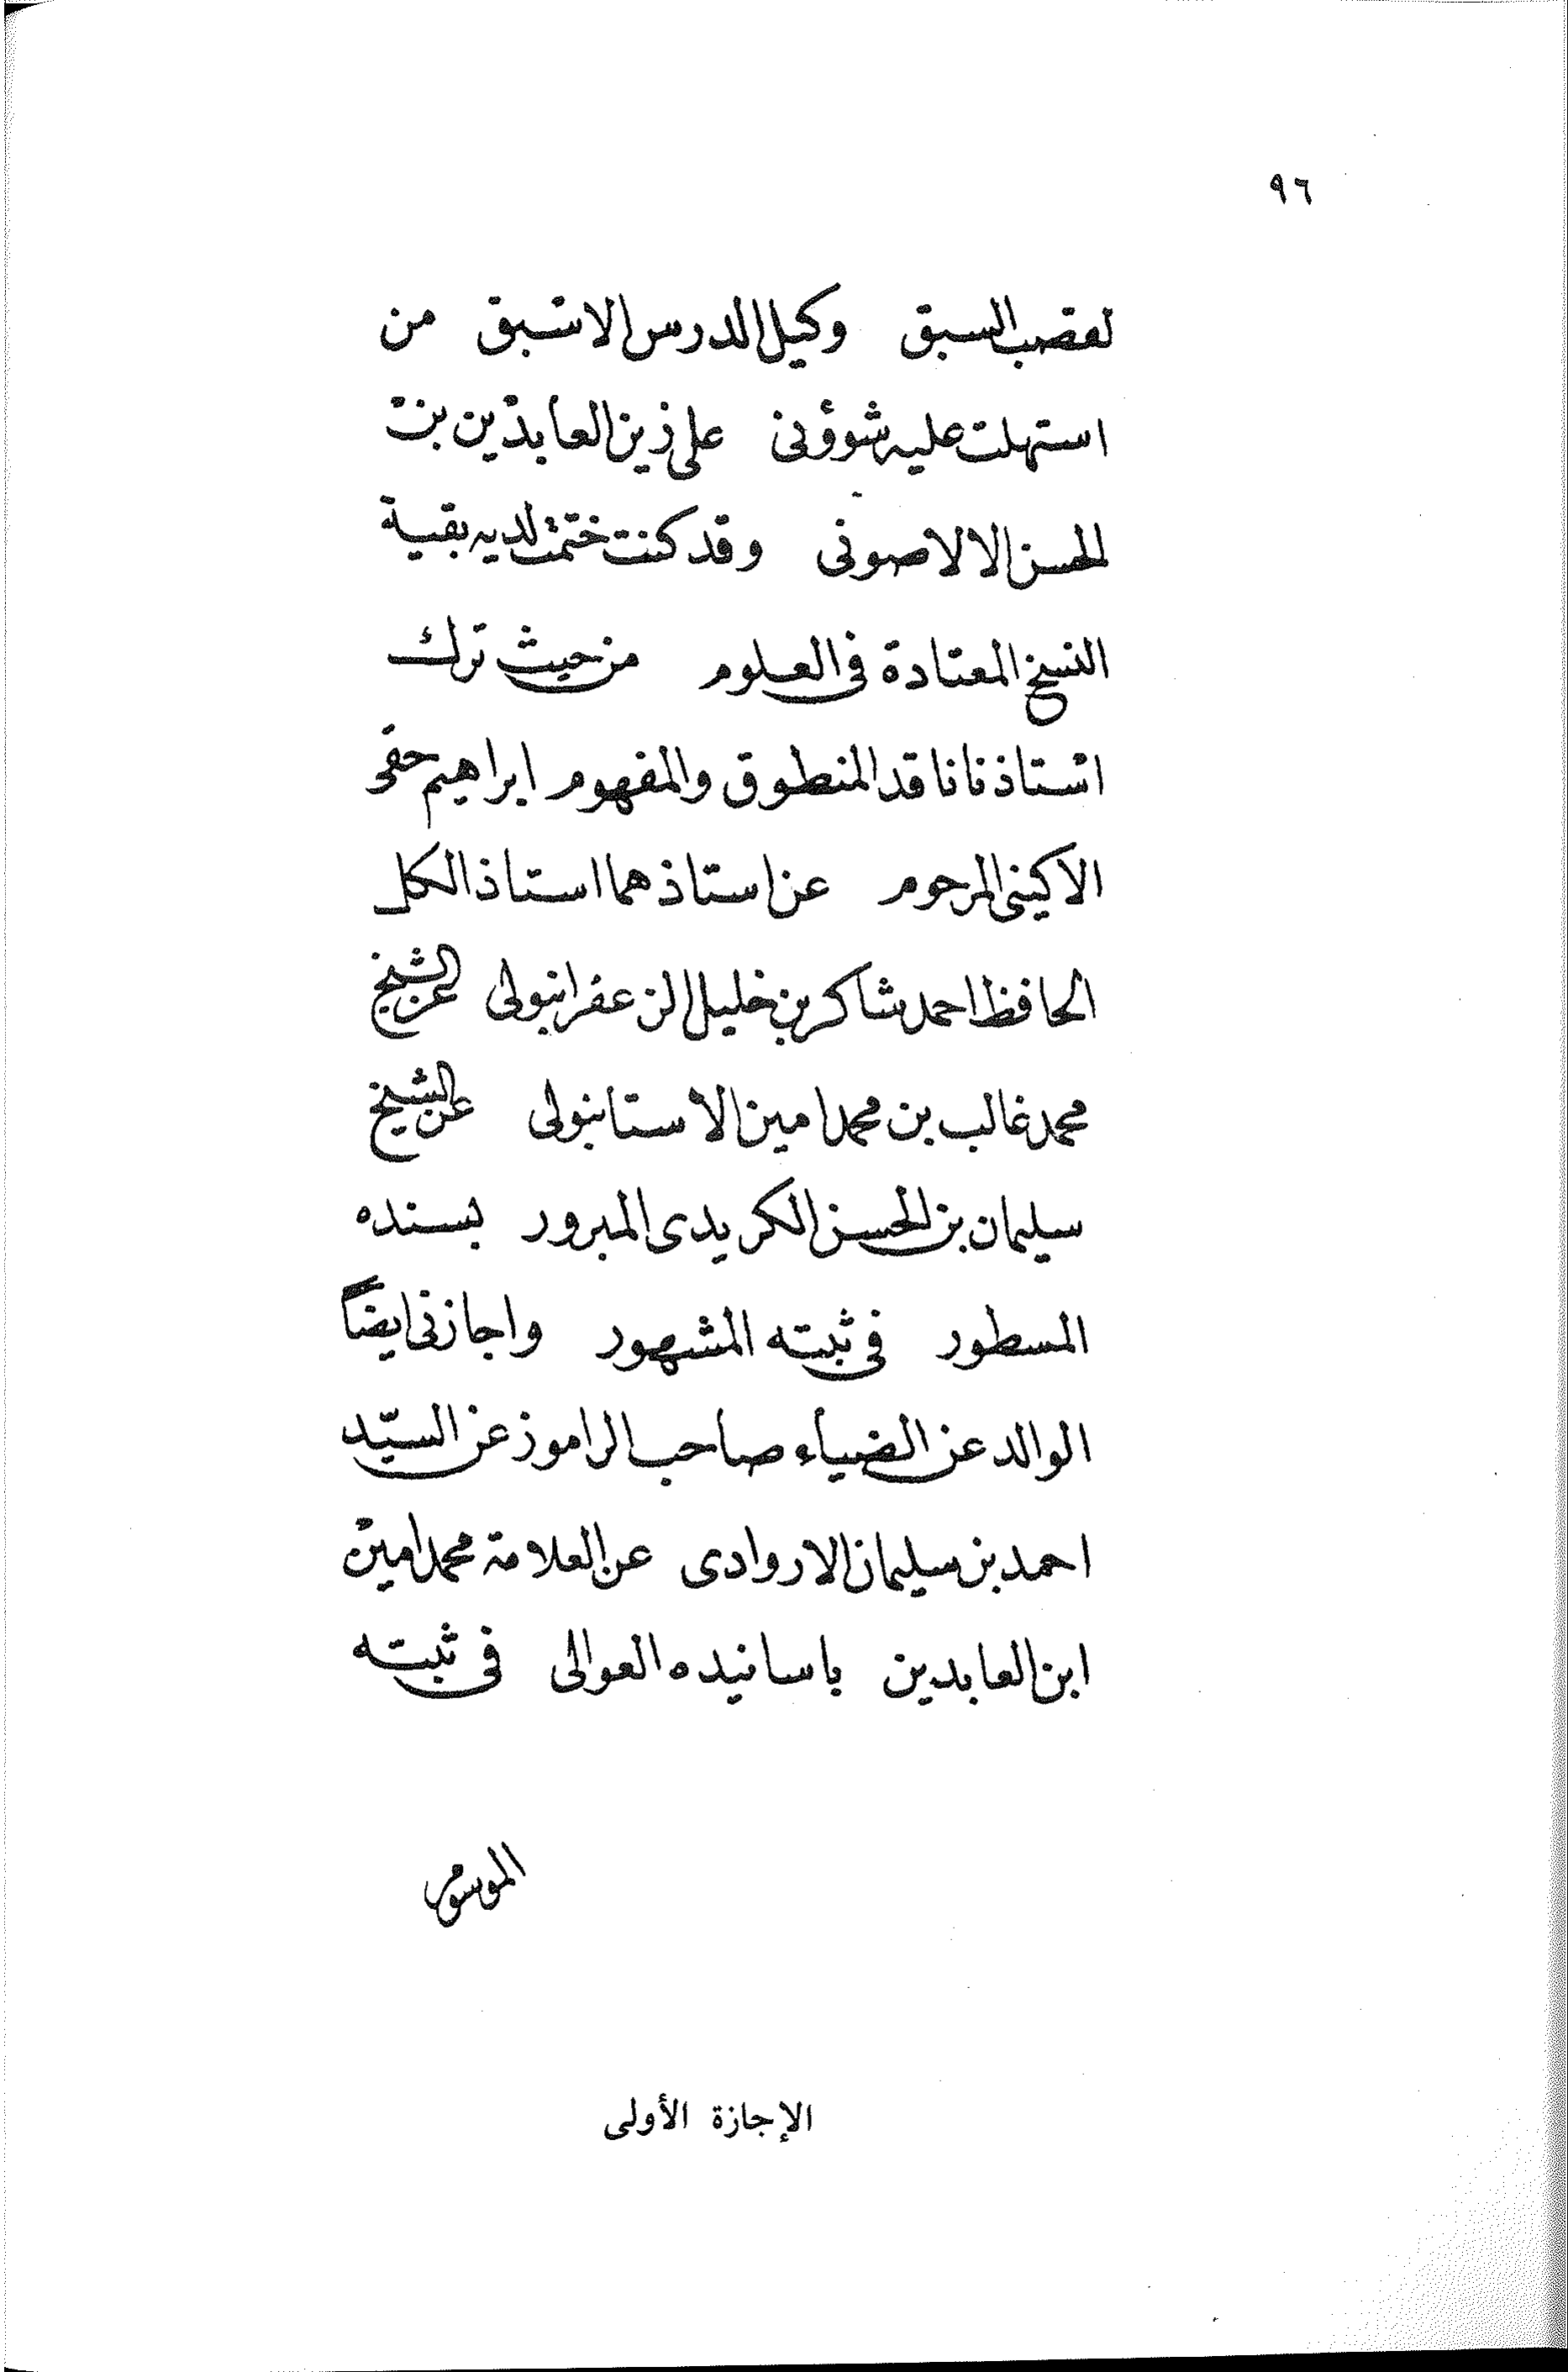 ٩٦
لقصب السبق وكيل الدرس الاسبق من
استهلت عليه شوؤنى على زين العابدين بن
الحسن الالاصونى وقد كنت ختمت لديه بقية
النسخ المعتادة فى العلوم من حيث ترك
استاذنا ناقد المنطوق والمفهوم ابراهيم حقى
الاكينى المرحوم عن استاذهما استاذ الكل
الحافظ احمد شاكر بن خليل الزعفرانبولى عن الشيخ
محمد غالب بن محمد امين الاستانبولى عن الشيخ
سليمان بن الحسن الكريدى المبرور بسنده
المسطور فى ثبته المشهور واجازنى ايضاً
الوالد عن الضياء صاحب الراموز عن السيّد
احمد بن سليمان الاروادى عن العلامة محمد امين
ابن العابدين باسانيده العوالى فى ثبته
الموسوم
الإجازة الأولى